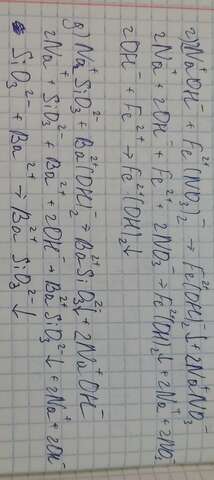 г) Na⁺OH⁻ + Fe²⁺(NO₃)₂⁻ → Fe²⁺(OH)₂⁻↓ + 2Na⁺NO₃⁻
2Na⁺ + 2OH⁻ + Fe²⁺ + 2NO₃⁻ → Fe²⁺(OH)₂↓ + 2Na⁺ + 2NO₃⁻
2OH⁻ + Fe²⁺ → Fe²⁺(OH)₂↓
д) Na₂⁺SiO₃²⁻ + Ba²⁺(OH)₂⁻ → Ba²⁺SiO₃²⁻↓ + 2Na⁺OH⁻
2Na⁺ + SiO₃²⁻ + Ba²⁺ + 2OH⁻ → Ba²⁺SiO₃²⁻↓ + 2Na⁺ + 2OH⁻
SiO₃²⁻ + Ba²⁺ → Ba²⁺SiO₃²⁻↓